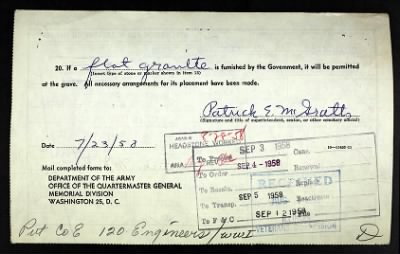 20. If a flat granite is furnished by the Government, it will be permitted
(Insert type of stone or marker shown in item 13)
at the grave. All necessary arrangements for its placement have been made.
Patrick E. McGratts
(Signature and title of superintendent, sexton, or other cemetery official)
Date 7/23/58
Mail completed forms to:
DEPARTMENT OF THE ARMY
OFFICE OF THE QUARTERMASTER GENERAL
MEMORIAL DIVISION
WASHINGTON 25, D. C.
HEADSTONE
To SEP 3 1958 Canc.
To Order SEP 4 - 1958 Renewal
To Reexam. Replace
To Transp. SEP 5 1958
To F & C SEP 12 1958
RECEIVED
Pvt Co E 120 Engineers / wwI
D